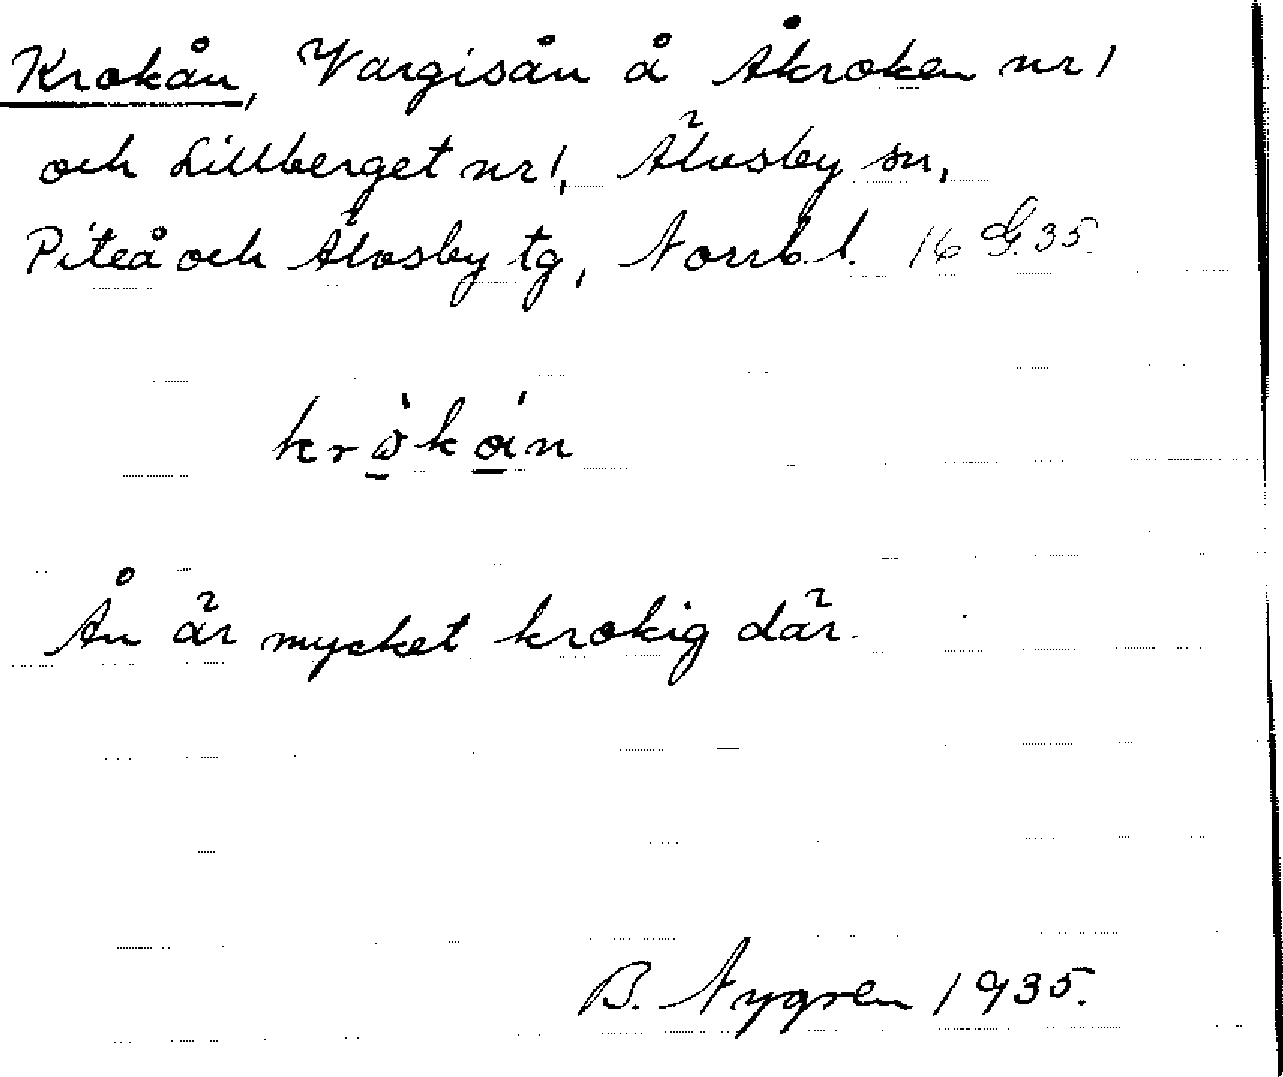 Krokån, Vargisån å Åkroken nr 1
och Lillberget nr 1, Älvsby sn,
Piteå och Älvsby tg, Norrb. l. 16 G. 35.
Ån är mycket krokig där.
B. Nygren 1935.